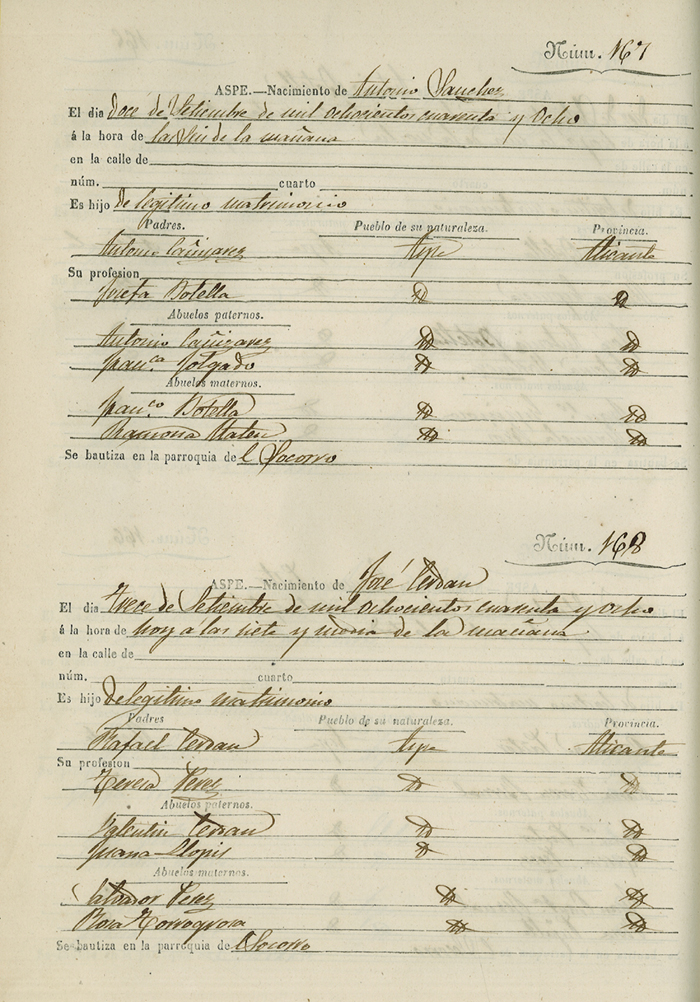 Núm. 167
ASPE.—Nacimiento de Antonio Sanchez
El dia doce de Setiembre de mil ochocientos cuarenta y Ocho
á la hora de las Seis de la mañana
en la calle de
núm. cuarto
Es hijo de legitimo matrimonio
Padres. Pueblo de su naturaleza. Provincia.
Antonio Cañizares Aspe Alicante
Su profesion
Josefa Botella
Abuelos paternos.
Antonio Cañizares
Fran.ca
Abuelos maternos.
Fran.co Botella
Ramona
Se bautiza en la parroquia del Socorro
Núm. 168
ASPE.—Nacimiento de José Cerdan
El dia Trece de Setiembre de mil ochocientos cuarenta y ocho
á la hora de hoy á las siete y media de la mañana
en la calle de
núm. cuarto
Es hijo de legitimo matrimonio
Padres Pueblo de su naturaleza. Provincia.
Rafael Cerdan Aspe Alicante
Su profesion
Teresa Perez
Abuelos paternos.
Valentin Cerdan
Juana Llopis
Abuelos maternos.
Salvador Perez
Rosa Torregrosa
Se bautiza en la parroquia del Socorro